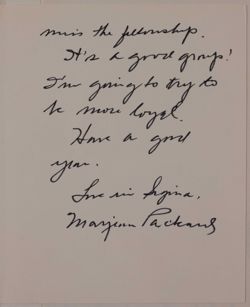 miss the fellowship.
It's a good group!
I'm going to try to
be more loyal.
Have a good
year.
Love in Sigma,
Packard